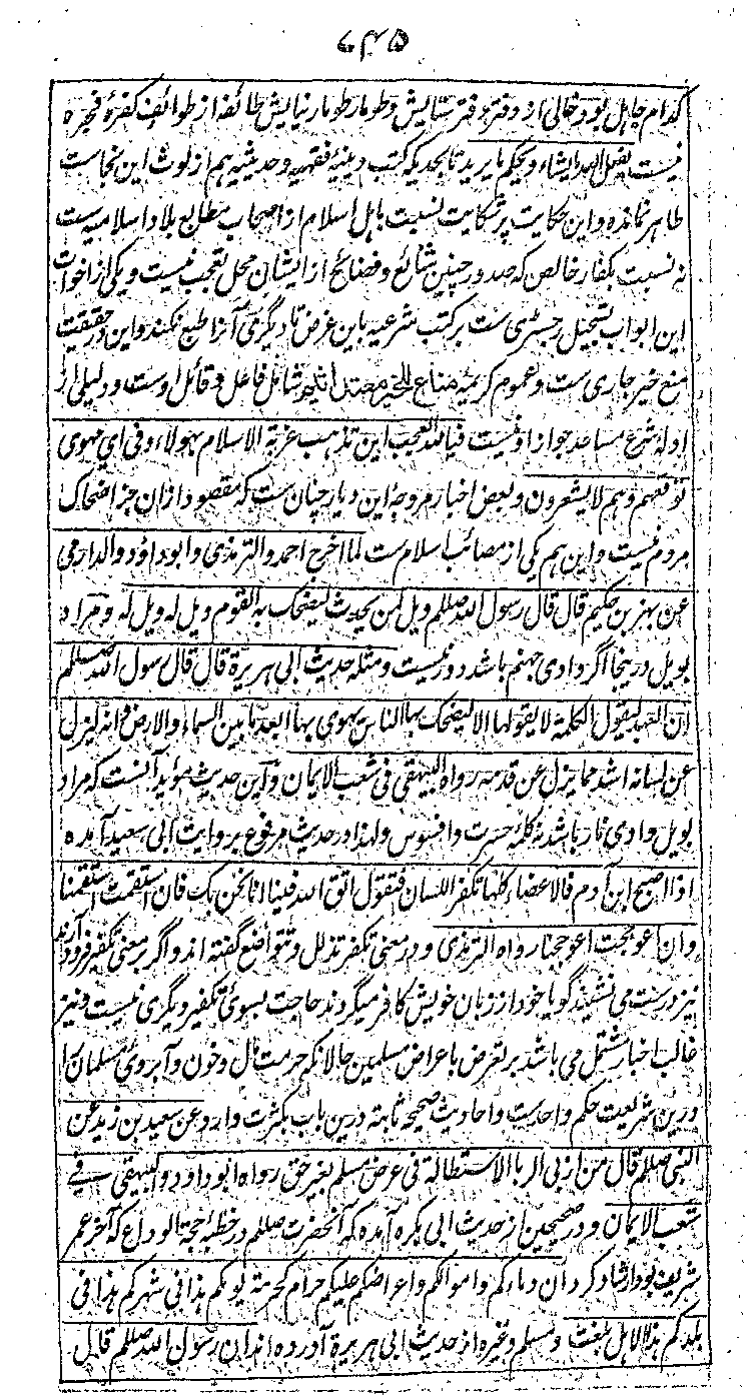 ۶۴۵
کدام جاہل بود خالی از دفتر دفتر ستایش و طومار طومار نیایش طائفہ از طوائف کفرۂ فجرہ
نیست یفعل اللہ ما یشاء و یحکم ما یرید تا بحدیکہ کتب دینیہ فقہیہ و حدیثیہ ہم از لوث این نجاست
طاہر نماندہ و این حکایت پر شکایت نسبت باہل اسلام از اصحاب مطابع بلاد اسلامیہ ست
نہ نسبت بکفار خالص کہ صدور چنین شنائع و فضائح از ایشان محل تعجب نیست و یکی از اخوات
این ابواب تسجیل رجسٹری ست بر کتب شرعیہ باین غرض تا دیگری آنرا طبع نکند و این در حقیقت
منع خیر جاری ست و عموم کریمۂ مناع للخیر معتد اثیم شامل فاعل و قائل اوست و دلیلی از
ادلہ شرع مساعد جواز او نیست فیا للہ العجب این تذہب غربۃ الاسلام بہولاء و فی ای مہوی
توقعہم و ہم لا یشعرون و بعض اخبار مروجۂ این دیار چنان ست کہ مقصود ازان جز اضحاک
مردم نیست و این ہم یکی از مصائب اسلام ست لما اخرج احمد والترمذی وابو داؤد والدارمی
عن بہز بن حکیم قال قال رسول اللہ صللم ویل لمن یحدث لیضحک بہ القوم ویل لہ ویل لہ و مراد
بویل درینجا اگر وادی جہنم باشد دور نیست و مثلہ حدیث ابی ہریرۃ قال قال رسول اللہ صللم
ان العبد لیقول الکلمۃ لا یقولہا الا لیضحک بہا الناس یہوی بہا ابعد ما بین السماء والارض وانہ لیزل
عن لسانہ اشد مما یزل عن قدمہ رواہ البیہقی فی شعب الایمان و این حدیث مؤید آنست کہ مراد
بویل وادی نار باشد نہ کلمۂ حسرت و افسوس و لہذا در حدیث مرفوع بروایت ابی سعید آمدہ
اذا اصبح ابن آدم فالاعضاء کلہا تکفر اللسان فتقول اتق اللہ فینا انا نحن بک فان استقمت استقمنا
وان اعوججت اعوججنا رواہ الترمذی و در معنی تکفر تذلل و تتواضع گفتہ اند و اگر بر معنی تکفیر فرود آرند
نیز درست می نشیند گویا خود از زبان خویش کافر میگردند حاجت بسوی تکفیر دیگری نیست و نیز
غالب اخبار مشتمل می باشد بر تعرض باعراض مسلمین حالانکہ حرمت مال و خون و آبروی مسلمان را
درین شریعت حکم واحد ست و احادیث صحیحہ ثابتہ درین باب بکثرت وارد و عن سعید بن زید عن
النبی صللم قال من اربی الربا الاستطالۃ فی عرض مسلم بغیر حق رواہ ابو داود والبیہقی فی
شعب الایمان و در صحیحین از حدیث ابی بکرہ آمدہ کہ آنحضرت صللم در خطبۂ حجۃ الوداع کہ آخر عمر
شریف بود ارشاد کرد ان دماءکم و اموالکم و اعراضکم علیکم حرام کحرمۃ یومکم ہذا فی شہرکم ہذا فی
بلدکم ہذا الا ہل بلغت و مسلم و غیرہ از حدیث ابی ہریرۃ آوردہ اند ان رسول اللہ صللم قال